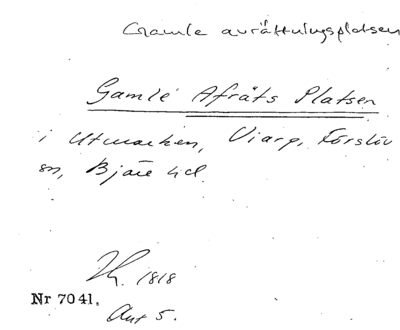 Gamle avrättningsplatsen
Gamle Afräts Platsen
i Utmarken, Viarp, Förslöv
sn, Bjäre hd
1818
Nr 7041.
Ant 5.